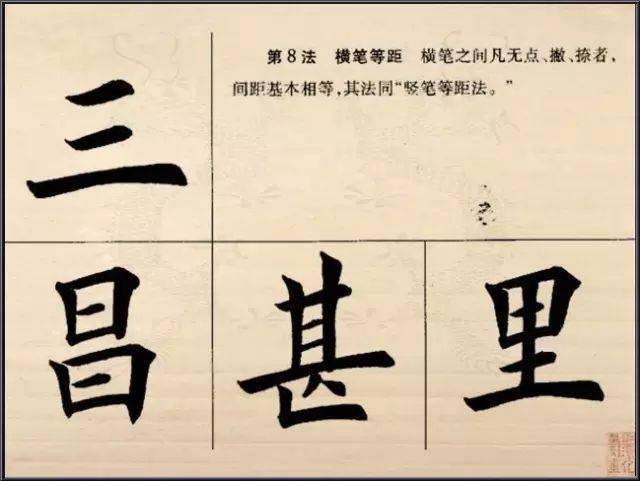 第8法 横笔等距 横笔之间凡无点、撇、捺者,
间距基本相等,其法同“竖笔等距法。”
三
昌 甚 里